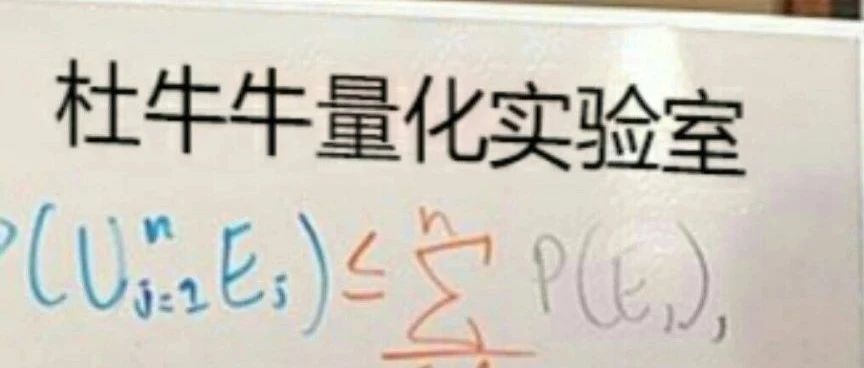 杜牛牛量化实验室
P(∪ⁿⱼ₌₁ Eⱼ) ≤ ∑ⁿ P(Eⱼ),